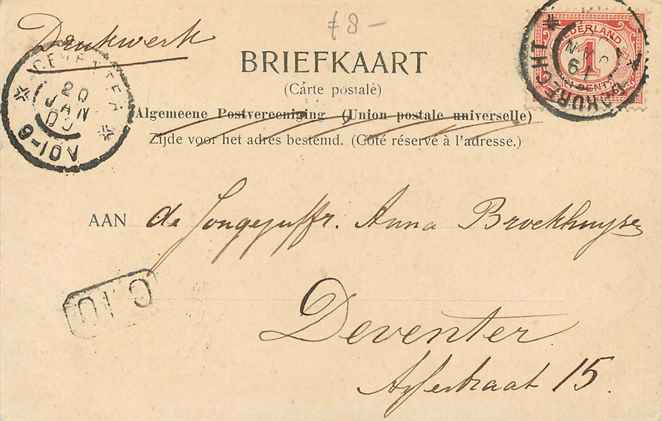 f 8 –
Drukwerk
BRIEFKAART
(Carte postale)
Algemeene Postvereeniging (Union postale universelle)
Zijde voor het adres bestemd. (Côté réservé à l'adresse.)
AAN de Jongejuffr. Anna Broekhuyse
Deventer
straat 15.
DEVENTER
20
JAN
NEDERLAND
1
CENT
DORDRECHT
C 10